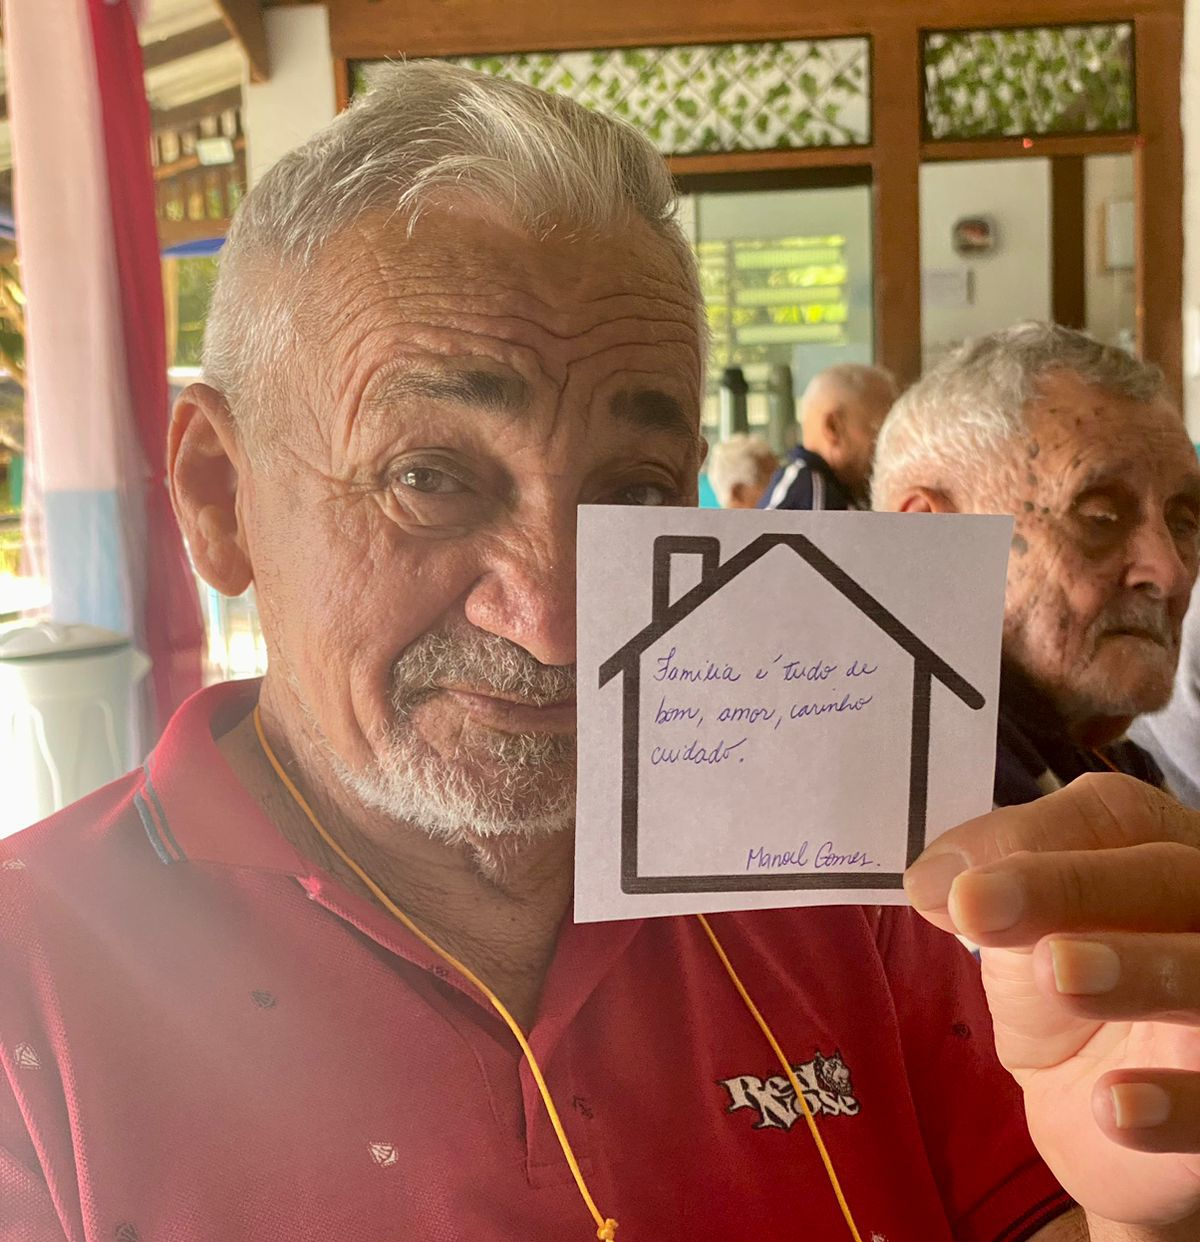 Familia é tudo de
bom, amor, carinho
cuidado.
Manoel Gomes.
Red
Nose